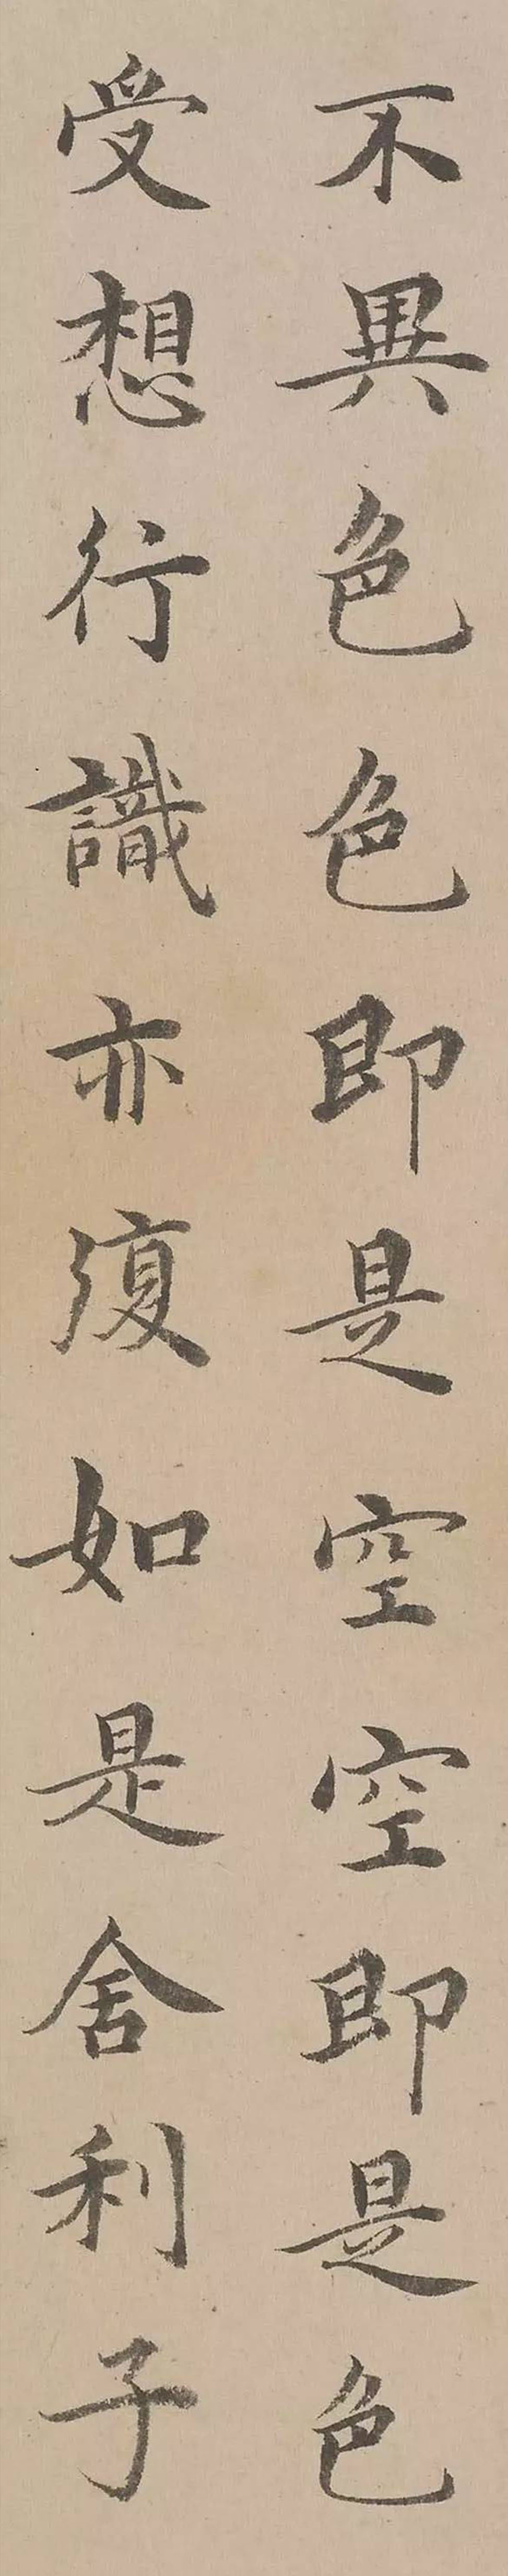 不異色色即是空空即是色
受想行識亦復如是舍利子